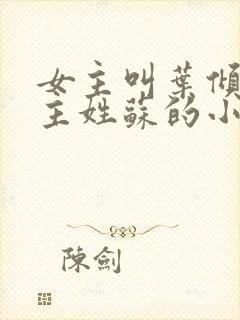 女主叫葉傾
主姓蘇的小
陳劍